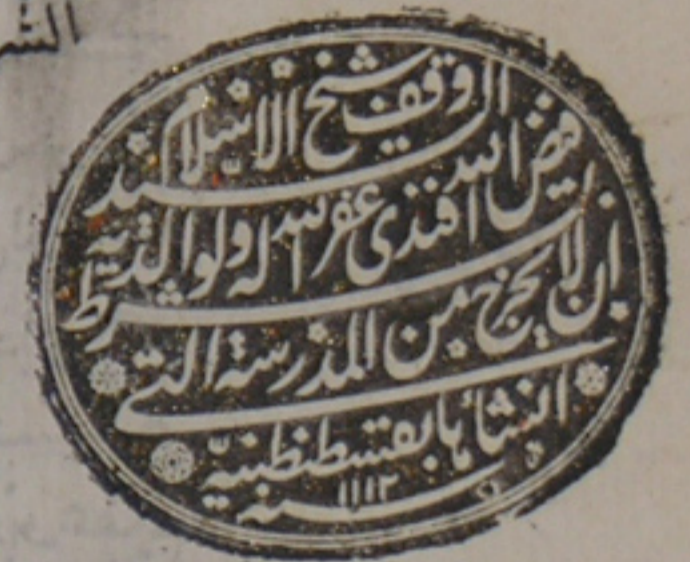 وقف شيخ الاسلام السيد
فيض الله افندى غفر الله له ولوالديه بشرط
ان لا يخرج من المدرسة التى
انشاها بقسطنطنية
سنه ١١١٢